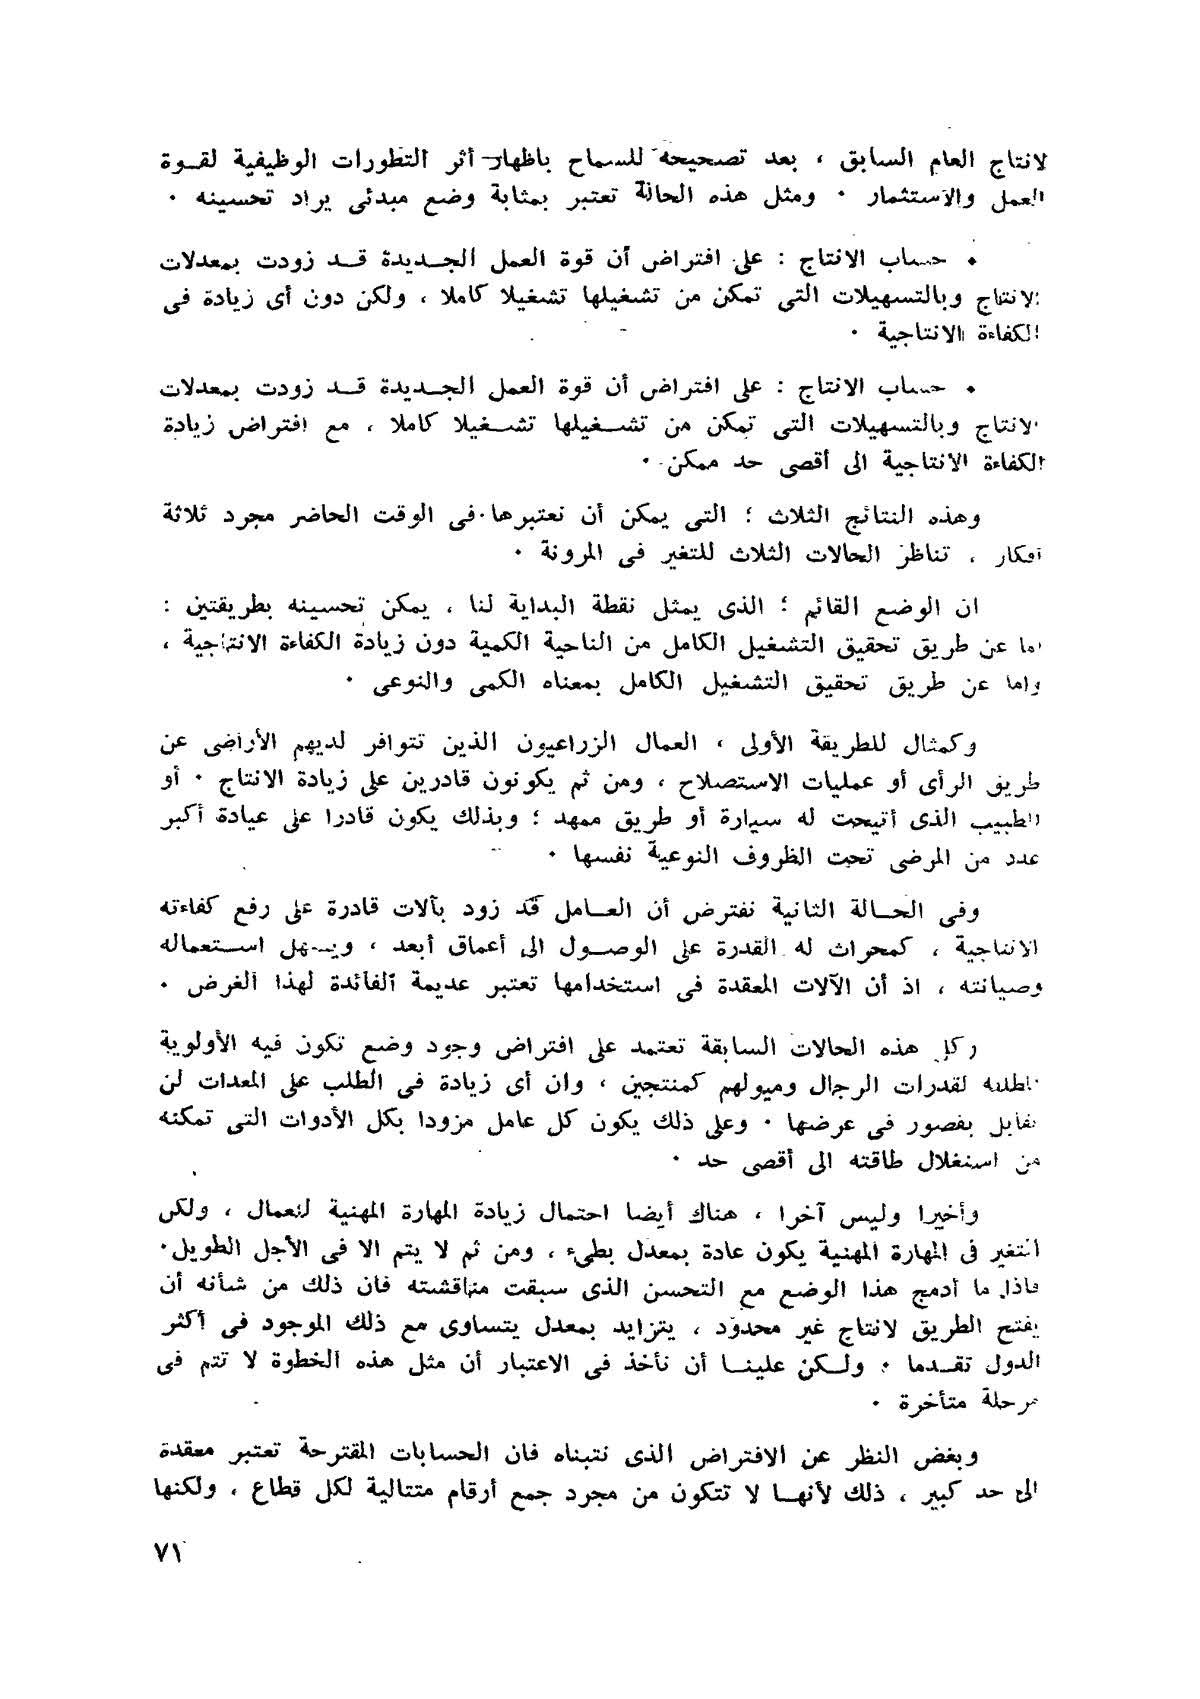 لانتاج العام السابق ، بعد تصحيحه للسماح باظهار أثر التطورات الوظيفية لقوة
العمل والاستثمار ٠ ومثل هذه الحالة تعتبر بمثابة وضع مبدئى يراد تحسينه ٠
• حساب الانتاج : على افتراض أن قوة العمل الجديدة قد زودت بمعدلات
الانتاج وبالتسهيلات التى تمكن من تشغيلها تشغيلا كاملا ، ولكن دون أى زيادة فى
الكفاءة الانتاجية ٠
• حساب الانتاج : على افتراض أن قوة العمل الجديدة قد زودت بمعدلات
الانتاج وبالتسهيلات التى تمكن من تشغيلها تشغيلا كاملا ، مع افتراض زيادة
الكفاءة الانتاجية الى أقصى حد ممكن ٠
وهذه النتائج الثلاث ؛ التى يمكن أن نعتبرها فى الوقت الحاضر مجرد ثلاثة
أفكار ، تناظر الحالات الثلاث للتغير فى المرونة ٠
ان الوضع القائم ؛ الذى يمثل نقطة البداية لنا ، يمكن تحسينه بطريقتين :
اما عن طريق تحقيق التشغيل الكامل من الناحية الكمية دون زيادة الكفاءة الانتاجية ،
واما عن طريق تحقيق التشغيل الكامل بمعناه الكمى والنوعى ٠
وكمثال للطريقة الأولى ، العمال الزراعيون الذين تتوافر لديهم الأراضى عن
طريق الرأى أو عمليات الاستصلاح ، ومن ثم يكونون قادرين على زيادة الانتاج ٠ أو
الطبيب الذى أتيحت له سيارة أو طريق ممهد ؛ وبذلك يكون قادرا على عيادة أكبر
عدد من المرضى تحت الظروف النوعية نفسها ٠
وفى الحالة الثانية نفترض أن العامل قد زود بآلات قادرة على رفع كفاءته
الانتاجية ، كمحراث له القدرة على الوصول الى أعماق أبعد ، ويسهل استعماله
وصيانته ، اذ أن الآلات المعقدة فى استخدامها تعتبر عديمة الفائدة لهذا الغرض ٠
وكل هذه الحالات السابقة تعتمد على افتراض وجود وضع تكون فيه الأولوية
المطلقة لقدرات الرجال وميولهم كمنتجين ، وان أى زيادة فى الطلب على المعدات لن
تقابل بقصور فى عرضها ٠ وعلى ذلك يكون كل عامل مزودا بكل الأدوات التى تمكنه
من استغلال طاقته الى أقصى حد ٠
وأخيرا وليس آخرا ، هناك أيضا احتمال زيادة المهارة المهنية للعمال ، ولكن
التغير فى المهارة المهنية يكون عادة بمعدل بطىء ، ومن ثم لا يتم الا فى الأجل الطويل ٠
فاذا ما أدمج هذا الوضع مع التحسن الذى سبقت مناقشته فان ذلك من شأنه أن
يفتح الطريق لانتاج غير محدود ، يتزايد بمعدل يتساوى مع ذلك الموجود فى أكثر
الدول تقدما ٠ ولكن علينا أن نأخذ فى الاعتبار أن مثل هذه الخطوة لا تتم فى
مرحلة متأخرة ٠
وبغض النظر عن الافتراض الذى نتبناه فان الحسابات المقترحة تعتبر معقدة
الى حد كبير ، ذلك لأنها لا تتكون من مجرد جمع أرقام متتالية لكل قطاع ، ولكنها
٧١